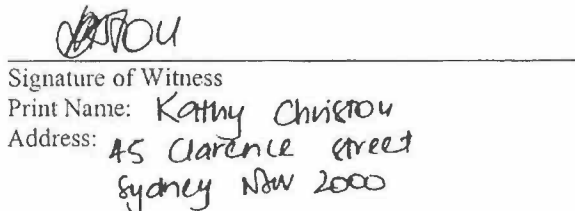 Signature of Witness
Print Name: Kathy Christou
Address: 45 Clarence street
Sydney NSW 2000